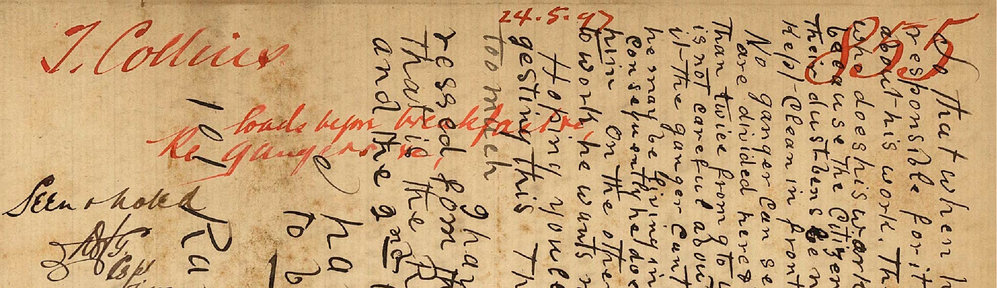 T. Collins
24.5.97
855
loads before breakfast re,
Re gangers
Seen & noted
that when h
responsible for it
about his work. Th
who does his work
because the Citizen
their dustbins
Kept Clean in front
No ganger Can se
are divided here
than twice from 9 to
is not careful about
it the ganger
he may be living in
Consequently he doe
him on the other
to work he wants
Hoping
gesting this Th
too mutch
ressed form
that is the R
and the 2nd
ha
To b
101 Ra